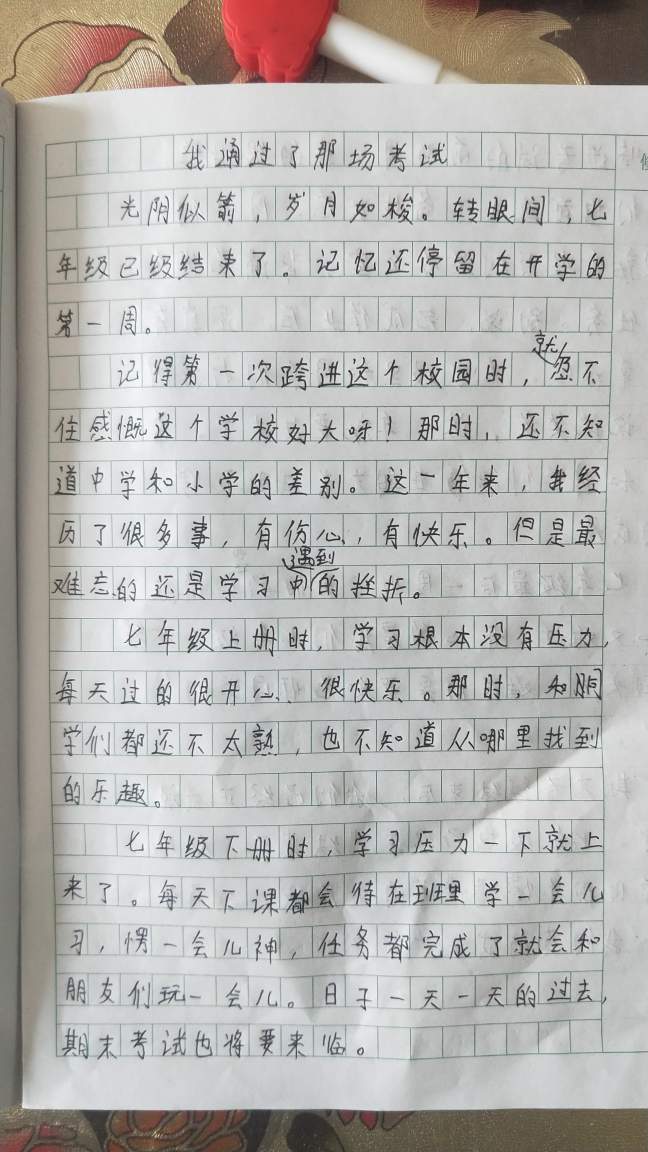 我通过了那场考试
光阴似箭，岁月如梭。转眼间，七
年级已级结束了。记忆还停留在开学的
第一周。
记得第一次跨进这个校园时，就忍不
住感慨这个学校好大呀！那时，还不知
道中学和小学的差别。这一年来，我经
历了很多事，有伤心，有快乐。但是最
难忘的还是学习中遇到的挫折。
七年级上册时，学习根本没有压力，
每天过的很开心、很快乐。那时，和同
学们都还不太熟，也不知道从哪里找到
的乐趣。
七年级下册时，学习压力一下就上
来了。每天下课都会待在班里学一会儿
习，愣一会儿神，任务都完成了就会和
朋友们玩一会儿。日子一天一天的过去，
期末考试也将要来临。